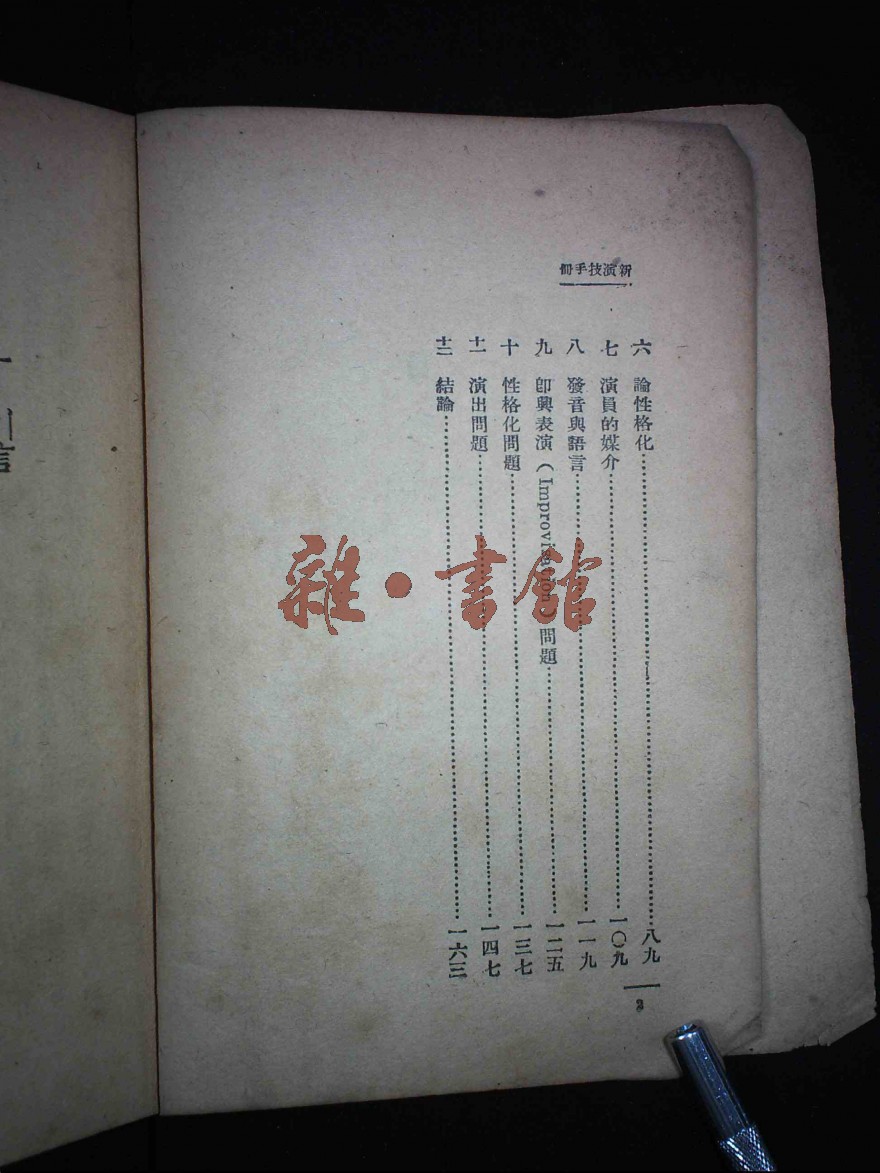 新演技手冊
六 論性格化 八九
七 演員的媒介 一〇九
八 發音與語言 一一九
九 卽興表演（Improvisation）問題 一二五
十 性格化問題 一三七
十一 演出問題 一四七
十二 結論 一六三
2
雜·書館